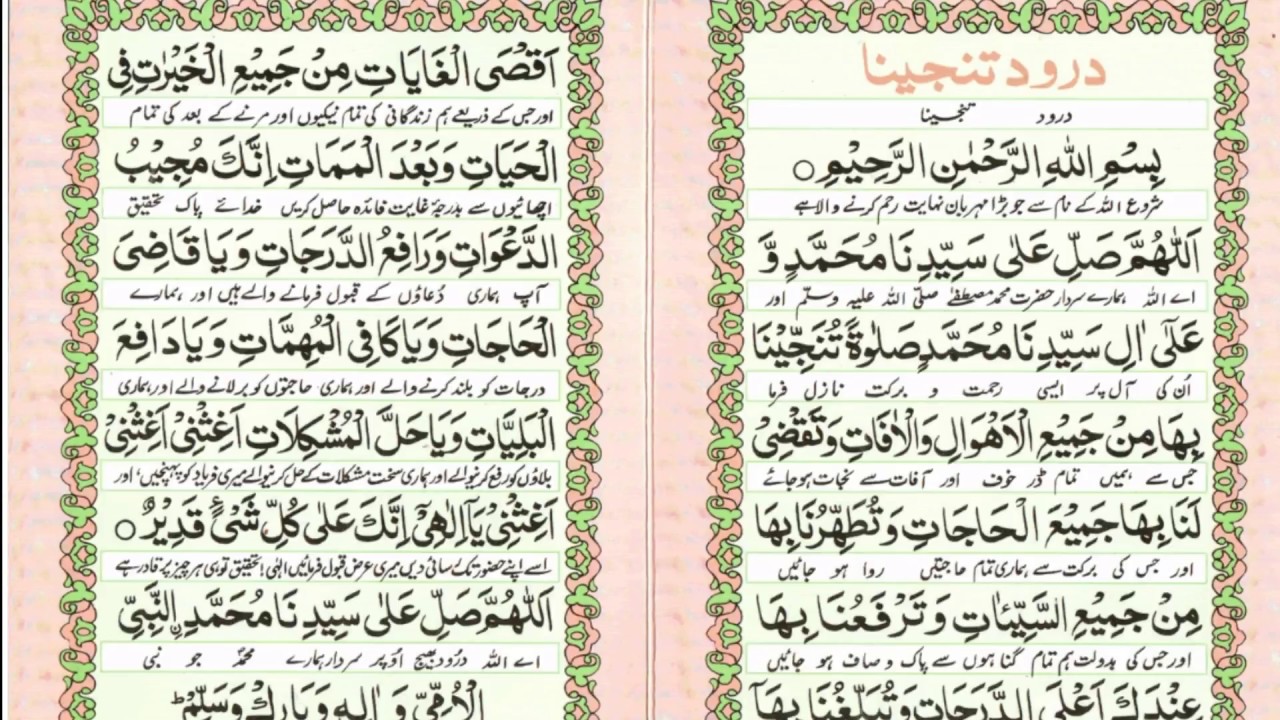 درود تنجینا
درود تنجینا
بِسْمِ اللهِ الرَّحْمٰنِ الرَّحِيْمِ ○
شروع اللہ کے نام سے جو بڑا مہربان نہایت رحم کرنے والا ہے
اَللّٰهُمَّ صَلِّ عَلٰى سَيِّدِنَا مُحَمَّدٍ وَّ
اے اللہ ہمارے سردار حضرت محمد مصطفےٰ صلّی اللہ علیہ وسلّم اور
عَلٰٓى اٰلِ سَيِّدِنَا مُحَمَّدٍ صَلٰوةً تُنَجِّيْنَا
اُن کی آل پر ایسی رحمت و برکت نازل فرما
بِهَا مِنْ جَمِيْعِ الْاَهْوَالِ وَالْاٰفَاتِ وَتَقْضِىْ
جس سے ہمیں تمام ڈر خوف اور آفات سے نجات ہو جائے
لَنَا بِهَا جَمِيْعَ الْحَاجَاتِ وَتُطَهِّرُنَا بِهَا
اور جس کی برکت سے ہماری تمام حاجتیں روا ہو جائیں
مِنْ جَمِيْعِ السَّيِّئَاتِ وَتَرْفَعُنَا بِهَا
اور جس کی بدولت ہم تمام گناہوں سے پاک و صاف ہو جائیں
عِنْدَكَ اَعْلَى الدَّرَجَاتِ وَتُبَلِّغُنَا بِهَآ
اَقْصَى الْغَايَاتِ مِنْ جَمِيْعِ الْخَيْرٰتِ فِى
اور جس کے ذریعے ہم زندگانی کی تمام نیکیوں اور مرنے کے بعد کی تمام
الْحَيَاتِ وَبَعْدَ الْمَمَاتِ اِنَّكَ مُجِيْبُ
اچھائیوں سے بدرجۂ غایت فائدہ حاصل کریں خدائے پاک تحقیق
الدَّعْوَاتِ وَرَافِعُ الدَّرَجَاتِ وَيَا قَاضِىَ
آپ ہماری دُعاؤں کے قبول فرمانے والے ہیں اور ہمارے
الْحَاجَاتِ وَيَا كَافِى الْمُهِمَّاتِ وَيَا دَافِعَ
درجات کو بلند کرنے والے اور ہماری حاجتوں کو برلانے والے اور ہماری
الْبَلِيَّاتِ وَيَا حَلَّ الْمُشْكِلَاتِ اَغِثْنِىْ اَغِثْنِىْ
بلاؤں کو رفع کرنیوالے اور ہماری سخت مشکلات کے حل کرنیوالے میری فریاد کو پہنچیں، اور
اَغِثْنِىْ يَآ اِلٰهِىْ اِنَّكَ عَلٰى كُلِّ شَىْءٍ قَدِيْرٌ ○
اسے اپنے حضور تک رسائی دیں میری عرض قبول فرمائیں الٰہی! تحقیق تو ہی ہر چیز پر قادر ہے
اَللّٰهُمَّ صَلِّ عَلٰى سَيِّدِنَا مُحَمَّدِ ِۨالنَّبِىِّ
اے اللہ درُود بھیج اوُپر سردار ہمارے محمدؐ جو نبی
الْاُمِّىِّ وَ اٰلِهٖ وَبَارِكْ وَسَلِّمْ ط